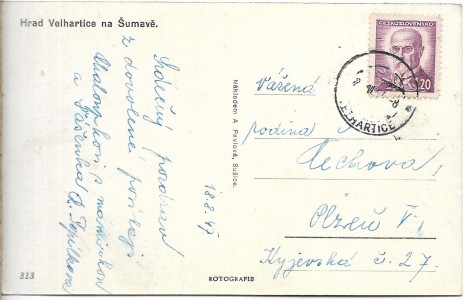 Hrad Velhartice na Šumavě.
Srdečný pozdrav
z dovolené posílají
s maminkou
a
18.8.47
Nákladem A. Pavlová, Sušice.
ČESKOSLOVENSKO
20
VELHARTICE
Vážená
rodina
Čechova
Plzeň V.,
Kyjevská č. 27.
313
ROTOGRAFIE